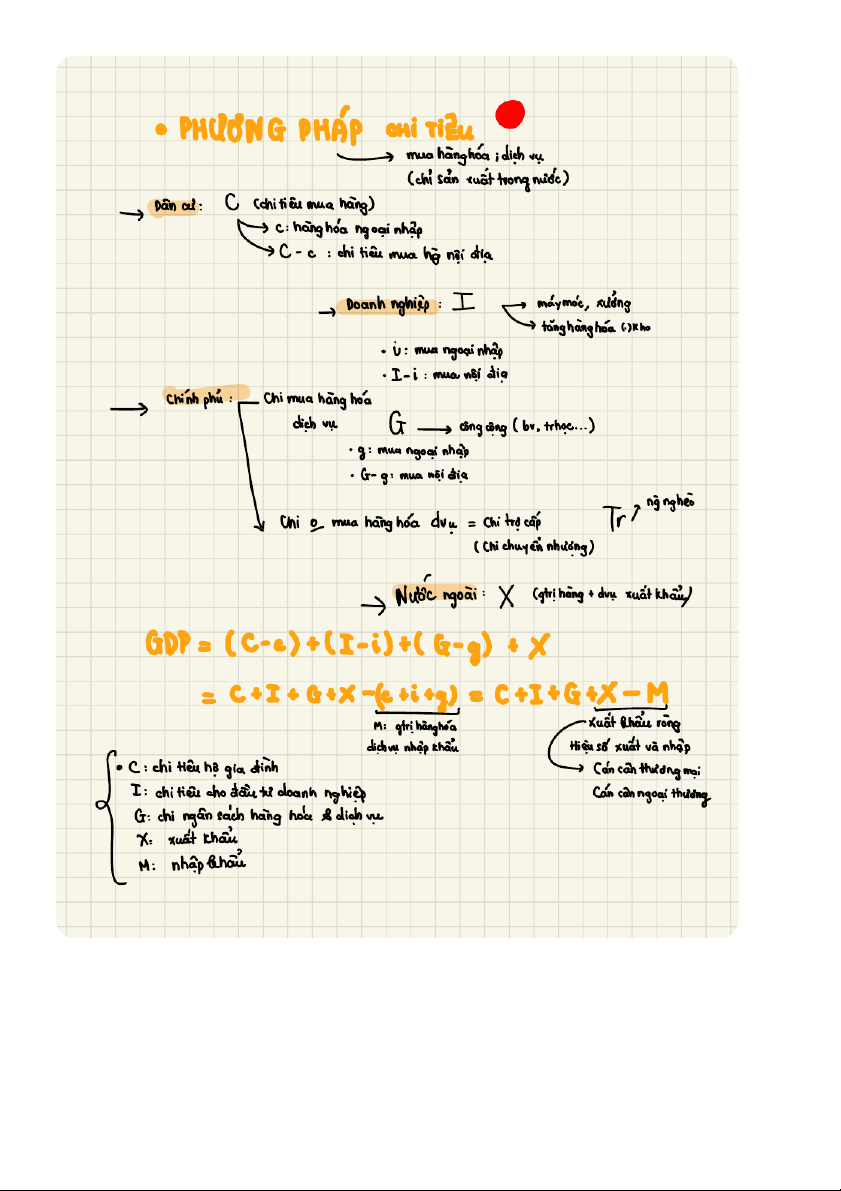 • PHƯƠNG PHÁP CHI TIÊU
mua hàng hóa, dịch vụ
(chỉ sản xuất trong nước)
→ Dân cư: C (chi tiêu mua hàng)
→ c: hàng hóa ngoại nhập
→ C - c : chi tiêu mua hg nội địa
→ Doanh nghiệp : I → máy móc, xưởng
→ tăng hàng hóa (.) kho
• i : mua ngoại nhập
• I - i : mua nội địa
→ Chính phủ : Chi mua hàng hóa
dịch vụ G → công cộng ( bv, trhọc...)
• g : mua ngoại nhập
• G - g : mua nội địa
Chi o mua hàng hóa dvụ = Chi trợ cấp Tr ng nghèo
( Chi chuyển nhượng )
→ Nước ngoài : X (gtrị hàng + dvụ xuất khẩu)
GDP = (C-c)+(I-i)+(G-g) + X
= C+I+G+X-(c+i+g) = C+I+G+X-M
M: gtrị hàng hóa Xuất khẩu ròng
dịch vụ nhập khẩu Hiệu số xuất và nhập
• C : chi tiêu hộ gia đình → Cán cân thương mại
I : chi tiêu cho đầu tư doanh nghiệp Cán cân ngoại thương
G : chi ngân sách hàng hóa & dịch vụ
X: xuất khẩu
M : nhập khẩu